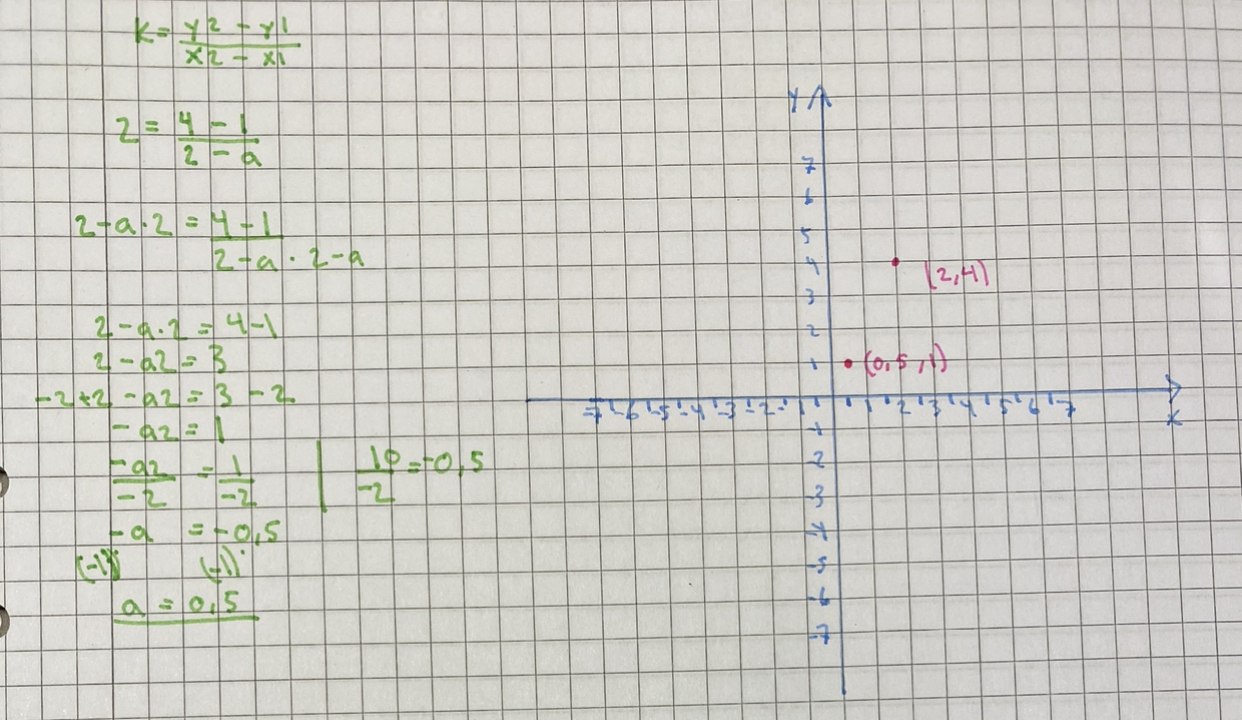 K = y2 - y1
x2 - x1
2 = 4 - 1
2 - a
2-a·2 = 4-1
2-a · 2-a
2-a·2 = 4-1
2 - a2 = 3
-2+2 - a2 = 3 - 2
-a2 = 1
-a2 = 1 | 10 = -0,5
-2 -2 -2
-a = -0,5
(-1) (-1)
a = 0,5
Y
7
6
5
4
(2,4)
3
2
1
(0,5 ,1)
-7 -6 -5 -4 -3 -2 -1 1 2 3 4 5 6 7
X
-1
-2
-3
-4
-5
-6
-7